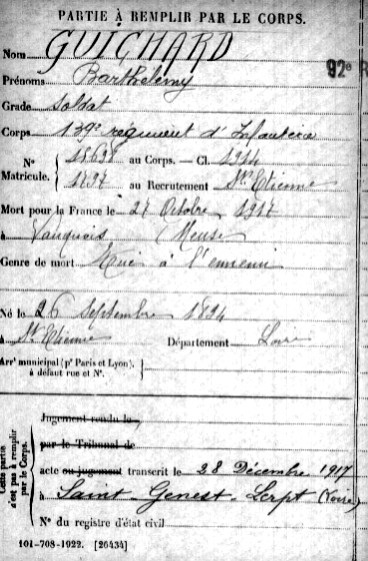 PARTIE À REMPLIR PAR LE CORPS.
Nom GUICHARD
92e R
Prénoms Barthélemy
Grade Soldat
Corps 139e régiment d'Infanterie
No Matricule. 15698 au Corps. — Cl. 1914
1797 au Recrutement St Etienne
Mort pour la France le 27 Octobre 1917
à Vauquois (Meuse)
Genre de mort Tué à l'ennemi
Né le 26 Septembre 1894
à St Etienne Département Loire
Arrt municipal (pr Paris et Lyon), à défaut rue et No.
Cette partie n'est pas à remplir par le Corps.
Jugement rendu le
par le Tribunal de
acte ou jugement transcrit le 28 Décembre 1917
à Saint-Genest-Lerpt (Loire)
No du registre d'état civil
101-708-1922. [26434]